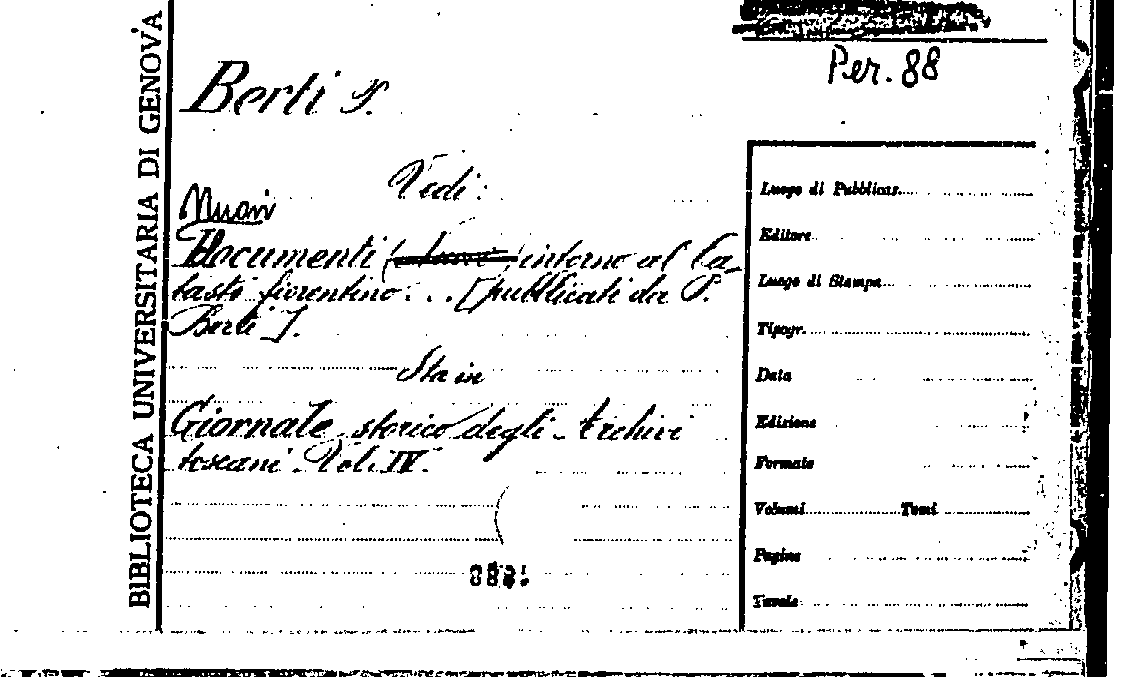 BIBLIOTECA UNIVERSITARIA DI GENOVA
Per. 88
Berti P.
Vedi:
Nuovi
Documenti intorno al Ca-
tasto fiorentino... [pubblicati da P.
Berti].
Sta in
Giornale storico degli Archivi
toscani. Vol. IV.
Luogo di Pubblicaz.
Editore
Luogo di Stampa
Tipogr.
Data
Edizione
Formato
Volumi Tomi
Pagine
Tavole